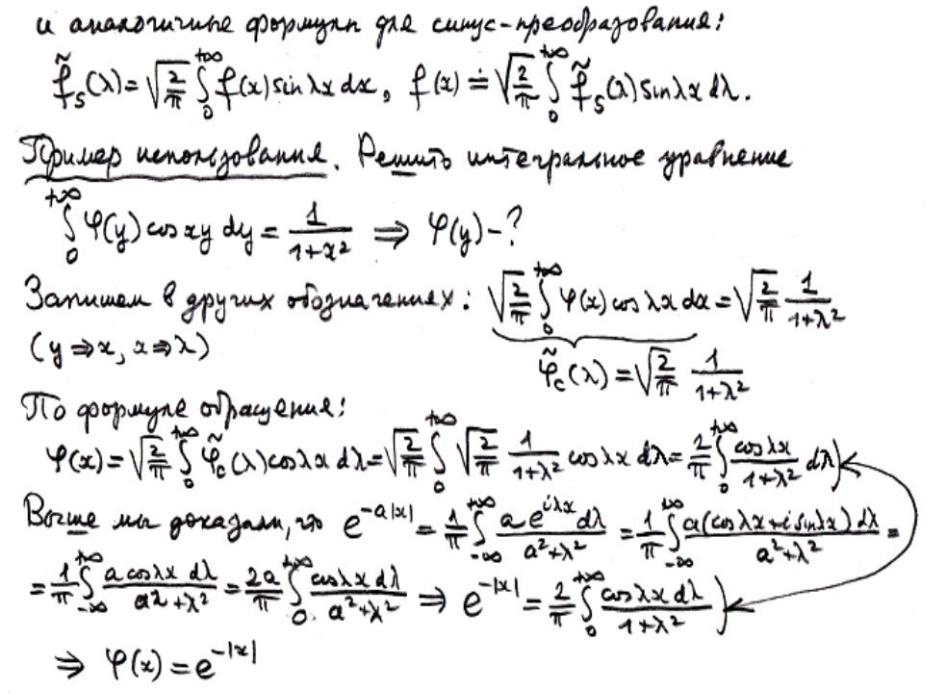 и аналогичные формулы для синус-преобразования:
f̃ₛ(λ)=√(2/π) ∫₀^{+∞} f(x) sin λx dx, f(x) ≐ √(2/π) ∫₀^{+∞} f̃ₛ(λ) sin λx dλ.
Пример использования. Решить интегральное уравнение
∫₀^{+∞} φ(y) cos xy dy = 1/(1+x²) ⇒ φ(y)-?
Запишем в других обозначениях: √(2/π) ∫₀^{+∞} φ(x) cos λx dx = √(2/π) 1/(1+λ²)
(y⇒x, x⇒λ) φ̃_c(λ) = √(2/π) 1/(1+λ²)
По формуле обращения:
φ(x) = √(2/π) ∫₀^{+∞} φ̃_c(λ) cos λx dλ = √(2/π) ∫₀^{+∞} √(2/π) 1/(1+λ²) cos λx dλ = 2/π ∫₀^{+∞} cos λx/(1+λ²) dλ)
Выше мы доказали, что e^{-a|x|} = 1/π ∫_{-∞}^{+∞} a e^{iλx} dλ/(a²+λ²) = 1/π ∫_{-∞}^{+∞} a(cos λx + i sin λx) dλ/(a²+λ²) =
= 1/π ∫_{-∞}^{+∞} a cos λx dλ/(a²+λ²) = 2a/π ∫₀^{+∞} cos λx dλ/(a²+λ²) ⇒ e^{-|x|} = 2/π ∫₀^{+∞} cos λx dλ/(1+λ²))
⇒ φ(x) = e^{-|x|}